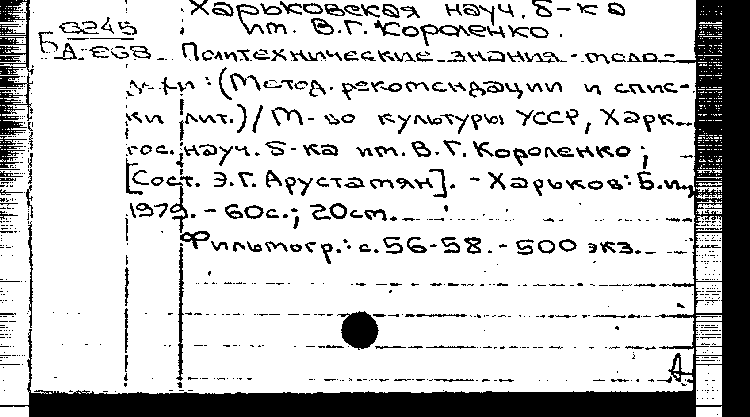 Харьковская науч. б-ка
им. В.Г. Короленко.
Б 8245
А-868 Политехнические знания - моло-
дежи: (Метод. рекомендации и спис-
ки лит.) / М-во культуры УССР, Харк.
гос. науч. б-ка им. В.Г. Короленко;
[Сост. Э.Г. Арустамян]. - Харьков: Б.и.,
1979. - 60с.; 20см.
Фильмогр.: с. 56-58. - 500 экз.
А